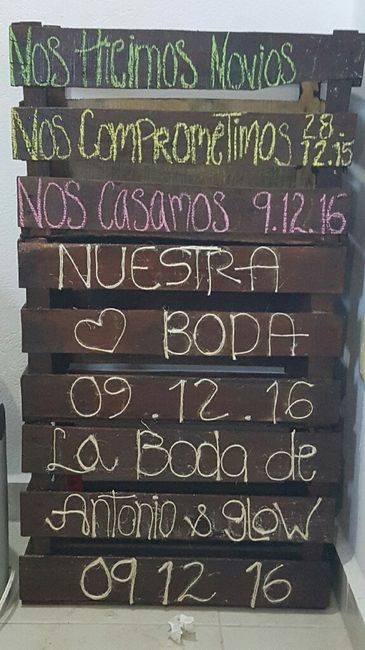 Nos Hicimos Novios
Nos Comprometimos 28.
12.15
Nos Casamos 9.12.16
NUESTRA
BODA
09.12.16
La Boda de
Antonio & glow
09 12 16